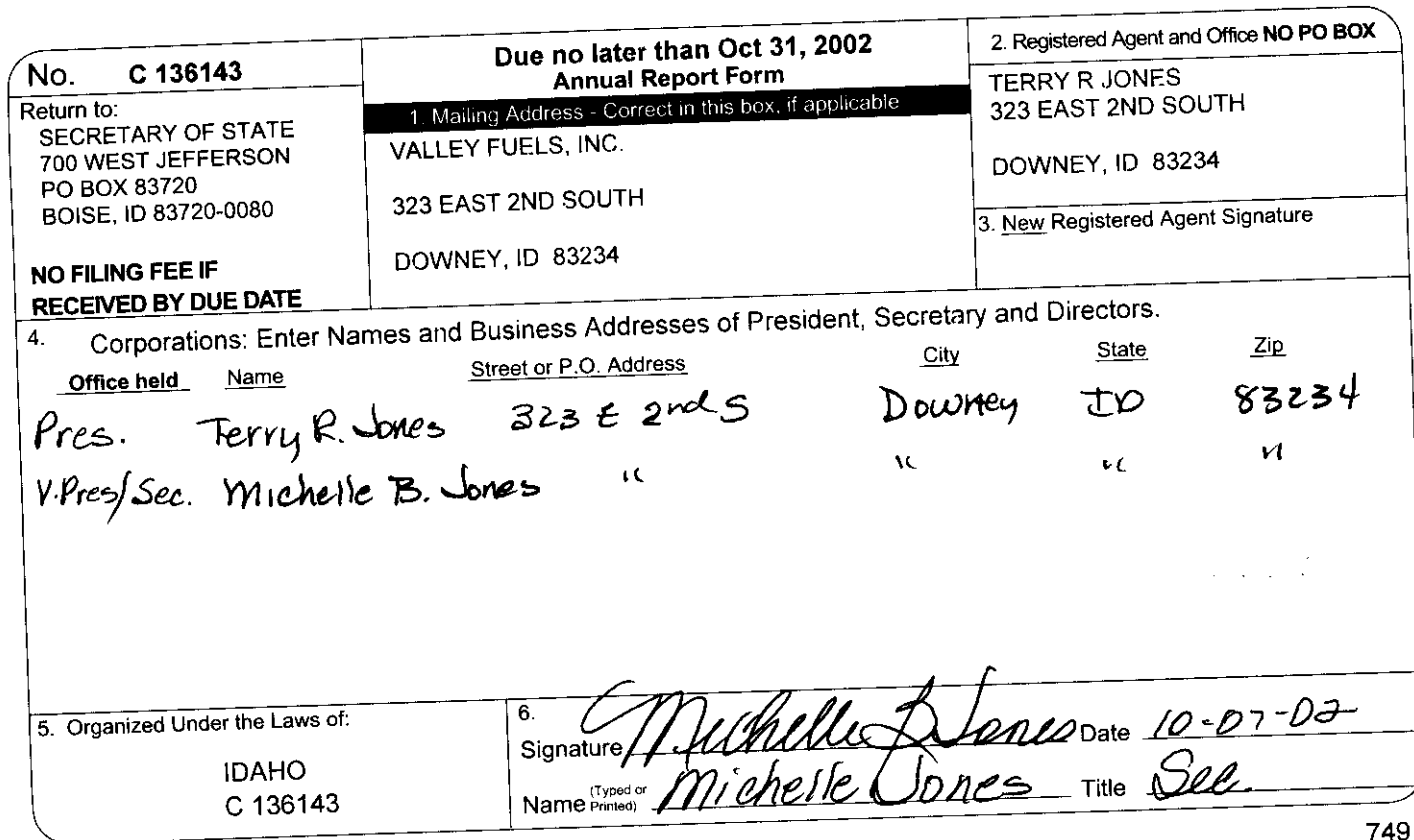 No. C 136143
Return to:
SECRETARY OF STATE
700 WEST JEFFERSON
PO BOX 83720
BOISE, ID 83720-0080
NO FILING FEE IF
RECEIVED BY DUE DATE
Due no later than Oct 31, 2002
Annual Report Form
1. Mailing Address - Correct in this box, if applicable
VALLEY FUELS, INC.
323 EAST 2ND SOUTH
DOWNEY, ID 83234
2. Registered Agent and Office NO PO BOX
TERRY R JONES
323 EAST 2ND SOUTH
DOWNEY, ID 83234
3. New Registered Agent Signature
4. Corporations: Enter Names and Business Addresses of President, Secretary and Directors.
Office held Name Street or P.O. Address City State Zip
Pres. Terry R. Jones 323 E 2nd S Downey ID 83234
V.Pres/Sec. Michelle B. Jones " " " "
5. Organized Under the Laws of:
IDAHO
C 136143
6.
Signature Michelle B Jones Date 10-07-02
Name (Typed or Printed) Michelle Jones Title Sec.
749